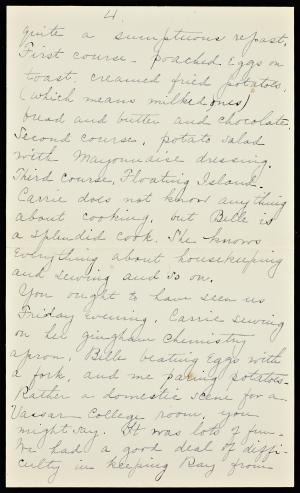 4.
quite a sumptuous repast.
First course - poached Eggs on
toast, creamed fried potatoes.
(which means milked ones)
bread and butter and chocolate.
Second course, potato salad
with Mayonnaise dressing.
Third course, Floating Island.
Carrie does not know anything
about cooking, but Belle is
a splendid cook. She knows
Everything about housekeeping
and sewing and so on.
You ought to have seen us
Friday Evening, Carrie sewing
on her gingham Chemistry
apron, Belle beating Eggs with
a fork, and me paring potatoes.
Rather a domestic scene for a
Vassar College room, you
might say. It was lots of fun.
We had a good deal of diffi-
culty in keeping Ray from